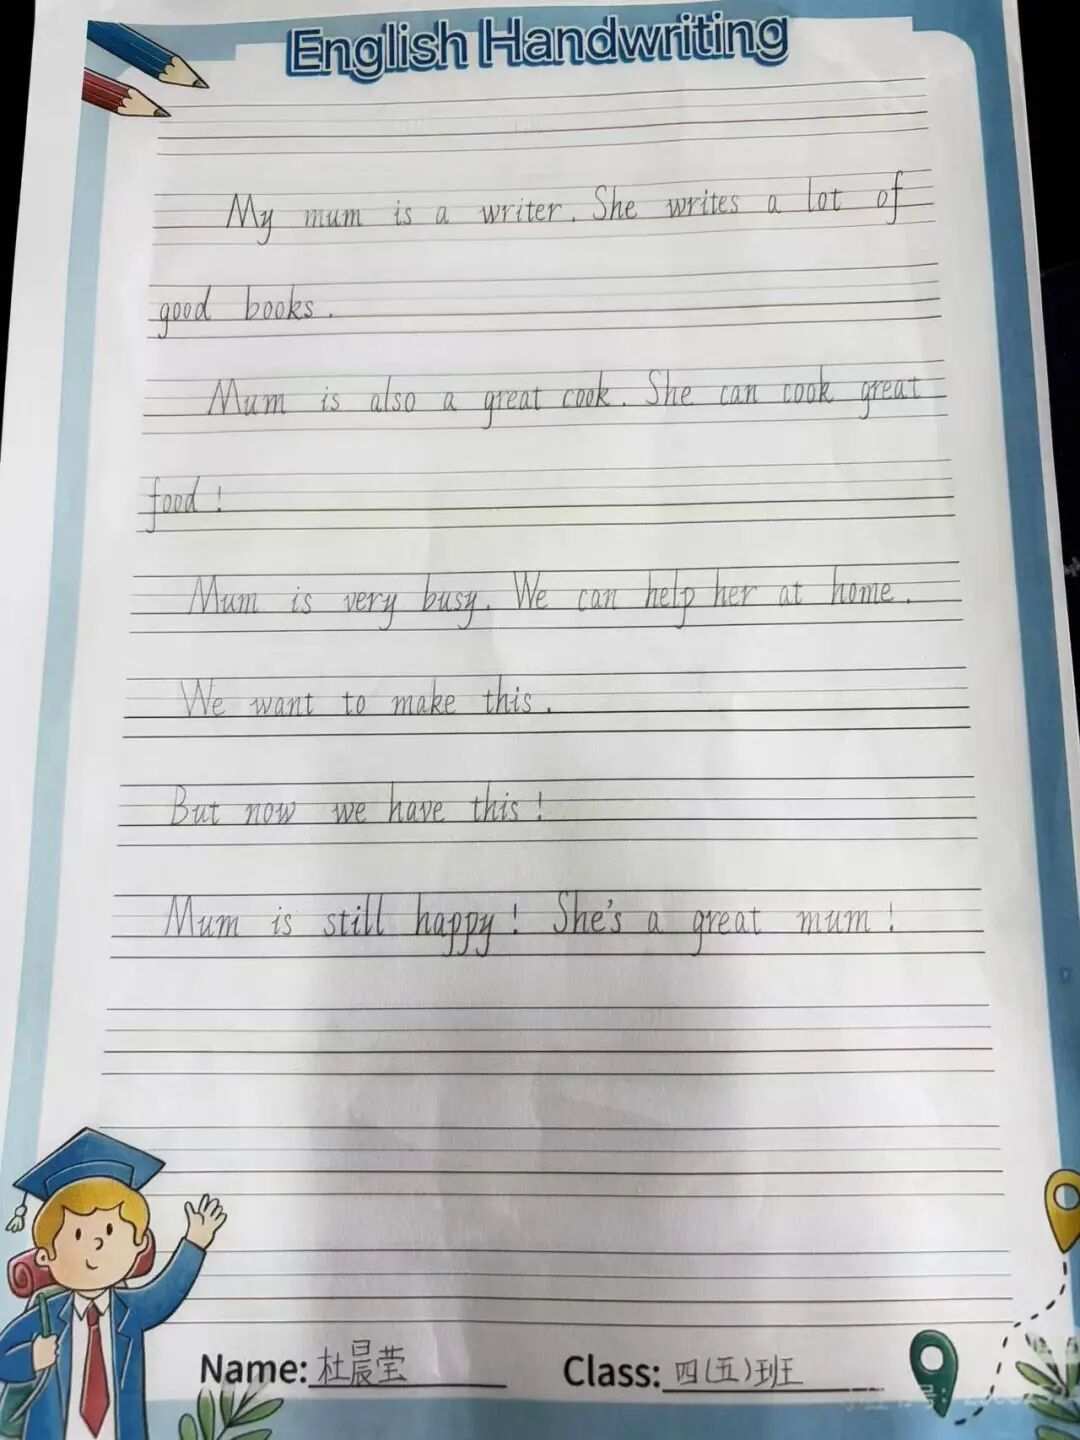 English Handwriting
My mum is a writer. She writes a lot of
good books.
Mum is also a great cook. She can cook great
food!
Mum is very busy. We can help her at home.
We want to make this.
But now we have this!
Mum is still happy! She's a great mum!
Name: 杜晨莹 Class: 四(五)班